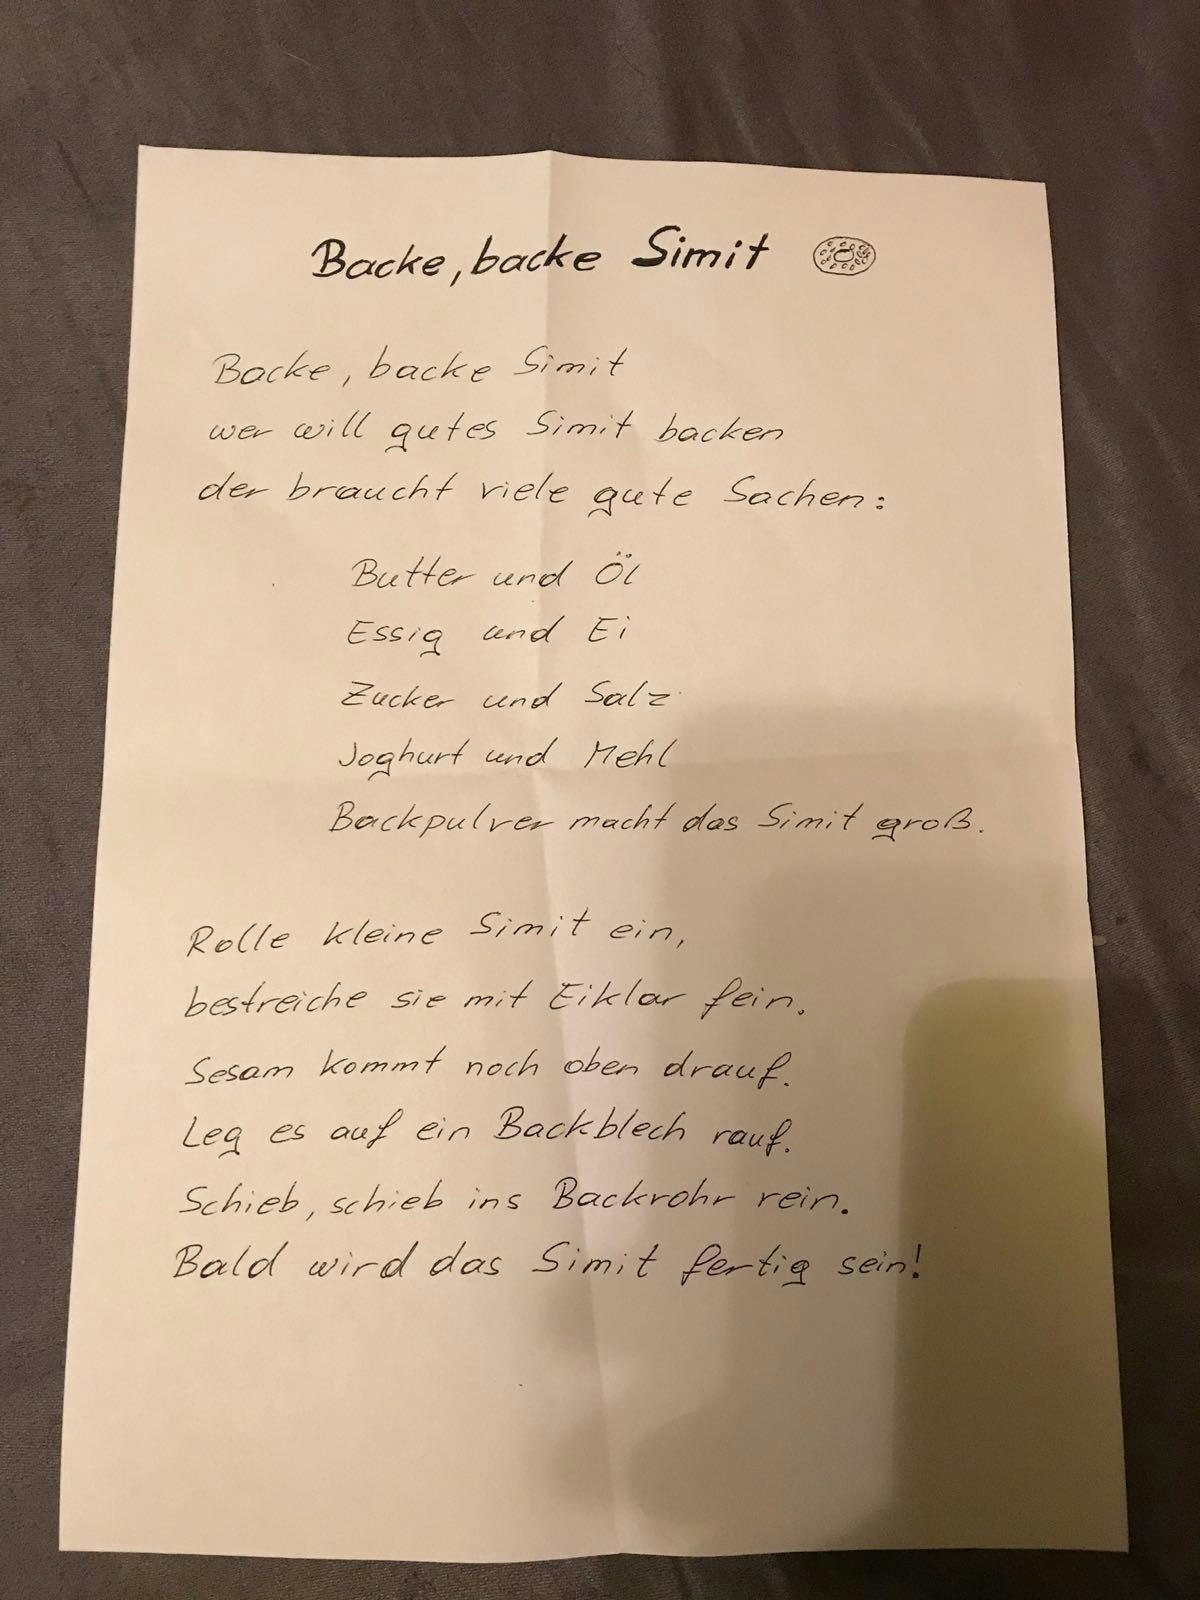 Backe, backe Simit
Backe, backe Simit
wer will gutes Simit backen
der braucht viele gute Sachen:
Butter und Öl
Essig und Ei
Zucker und Salz
Joghurt und Mehl
Backpulver macht das Simit groß.
Rolle kleine Simit ein,
bestreiche sie mit Eiklar fein.
Sesam kommt noch oben drauf.
Leg es auf ein Backblech rauf.
Schieb, schieb ins Backrohr rein.
Bald wird das Simit fertig sein!